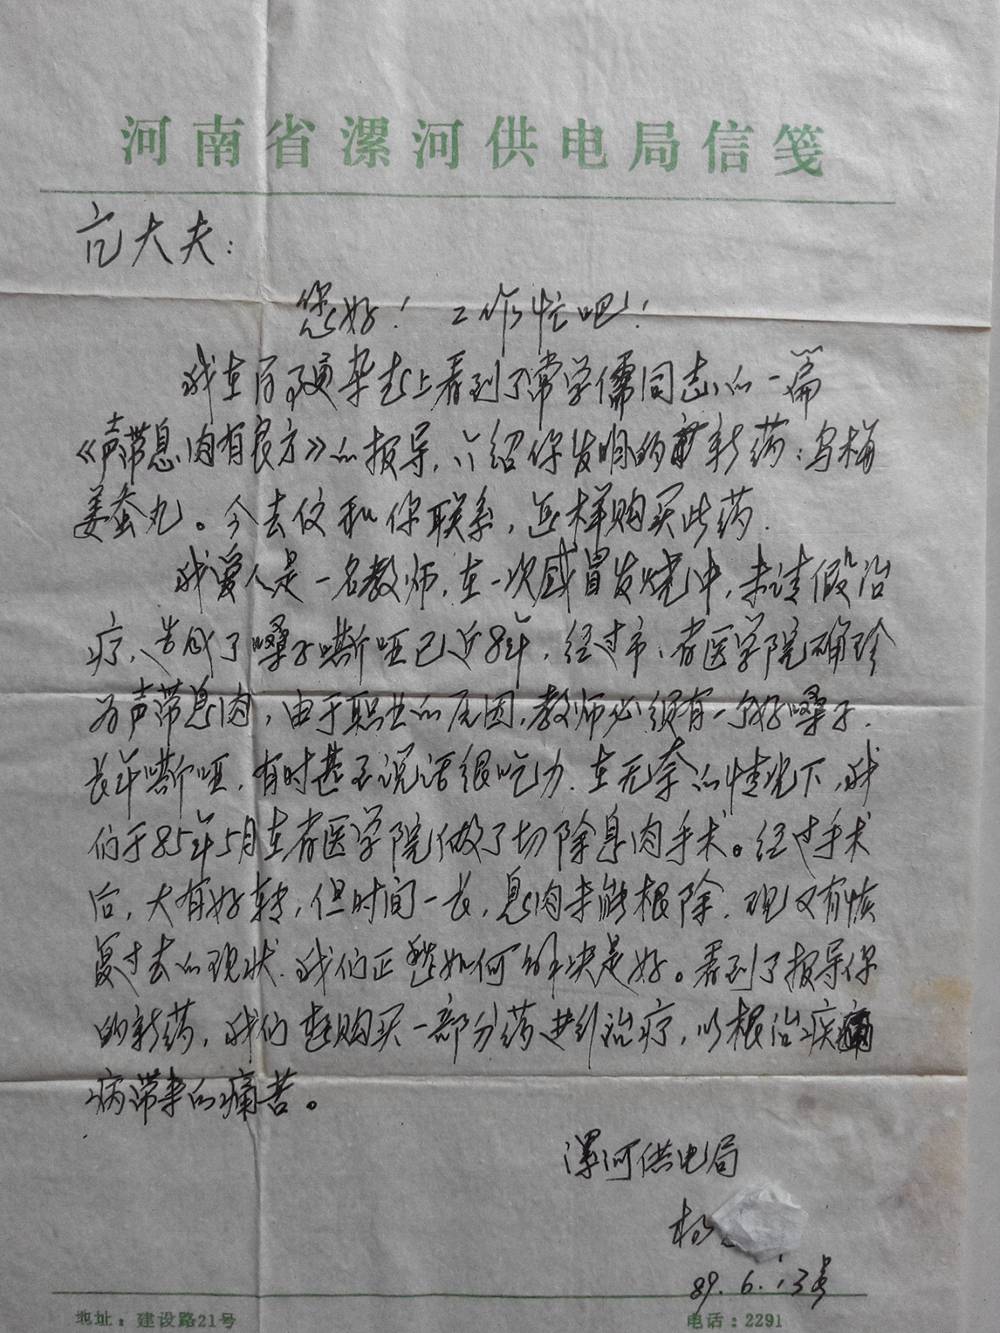 河南省漯河供电局信笺
大夫：
您好！工作忙吧！
我在百便杂志上看到了常学儒同志的一篇
《声带息肉有良方》的报导，介绍你发明的新药：乌梅
姜蚕丸。今去仪和你联系，怎样购买此药.
我爱人是一名教师，在一次感冒发烧中，未请假治
疗，造成了嗓子嘶哑已近8年，经过市、省医学院确珍
为声带息肉，由于职业的原因，教师必须有一个好嗓子.
长年嘶哑，有时甚至说话很吃力.在无奈的情况下，我
们于85年5月在省医学院做了切除息肉手术。经过手术
后，大有好转，但时间一长，息肉未能根除.现又有恢
复过去的现状.我们正愁如何解决是好。看到了报导你
的新药，我们想购买一部分药进行治疗，以根治疾
病带来的痛苦。
漯河供电局
杨
89.6.13号
地址：建设路21号 电话：2291